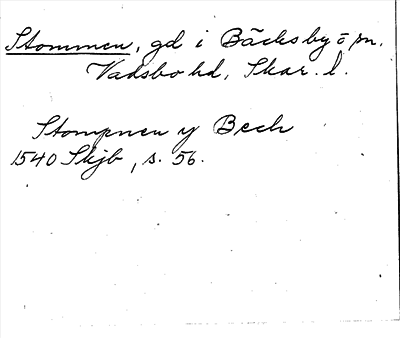 Stommen, gd i Bäcksby ö sn.
Vadsbo hd, Skar. l.
Stompnen y Bech
1540 Skjb, s. 56.